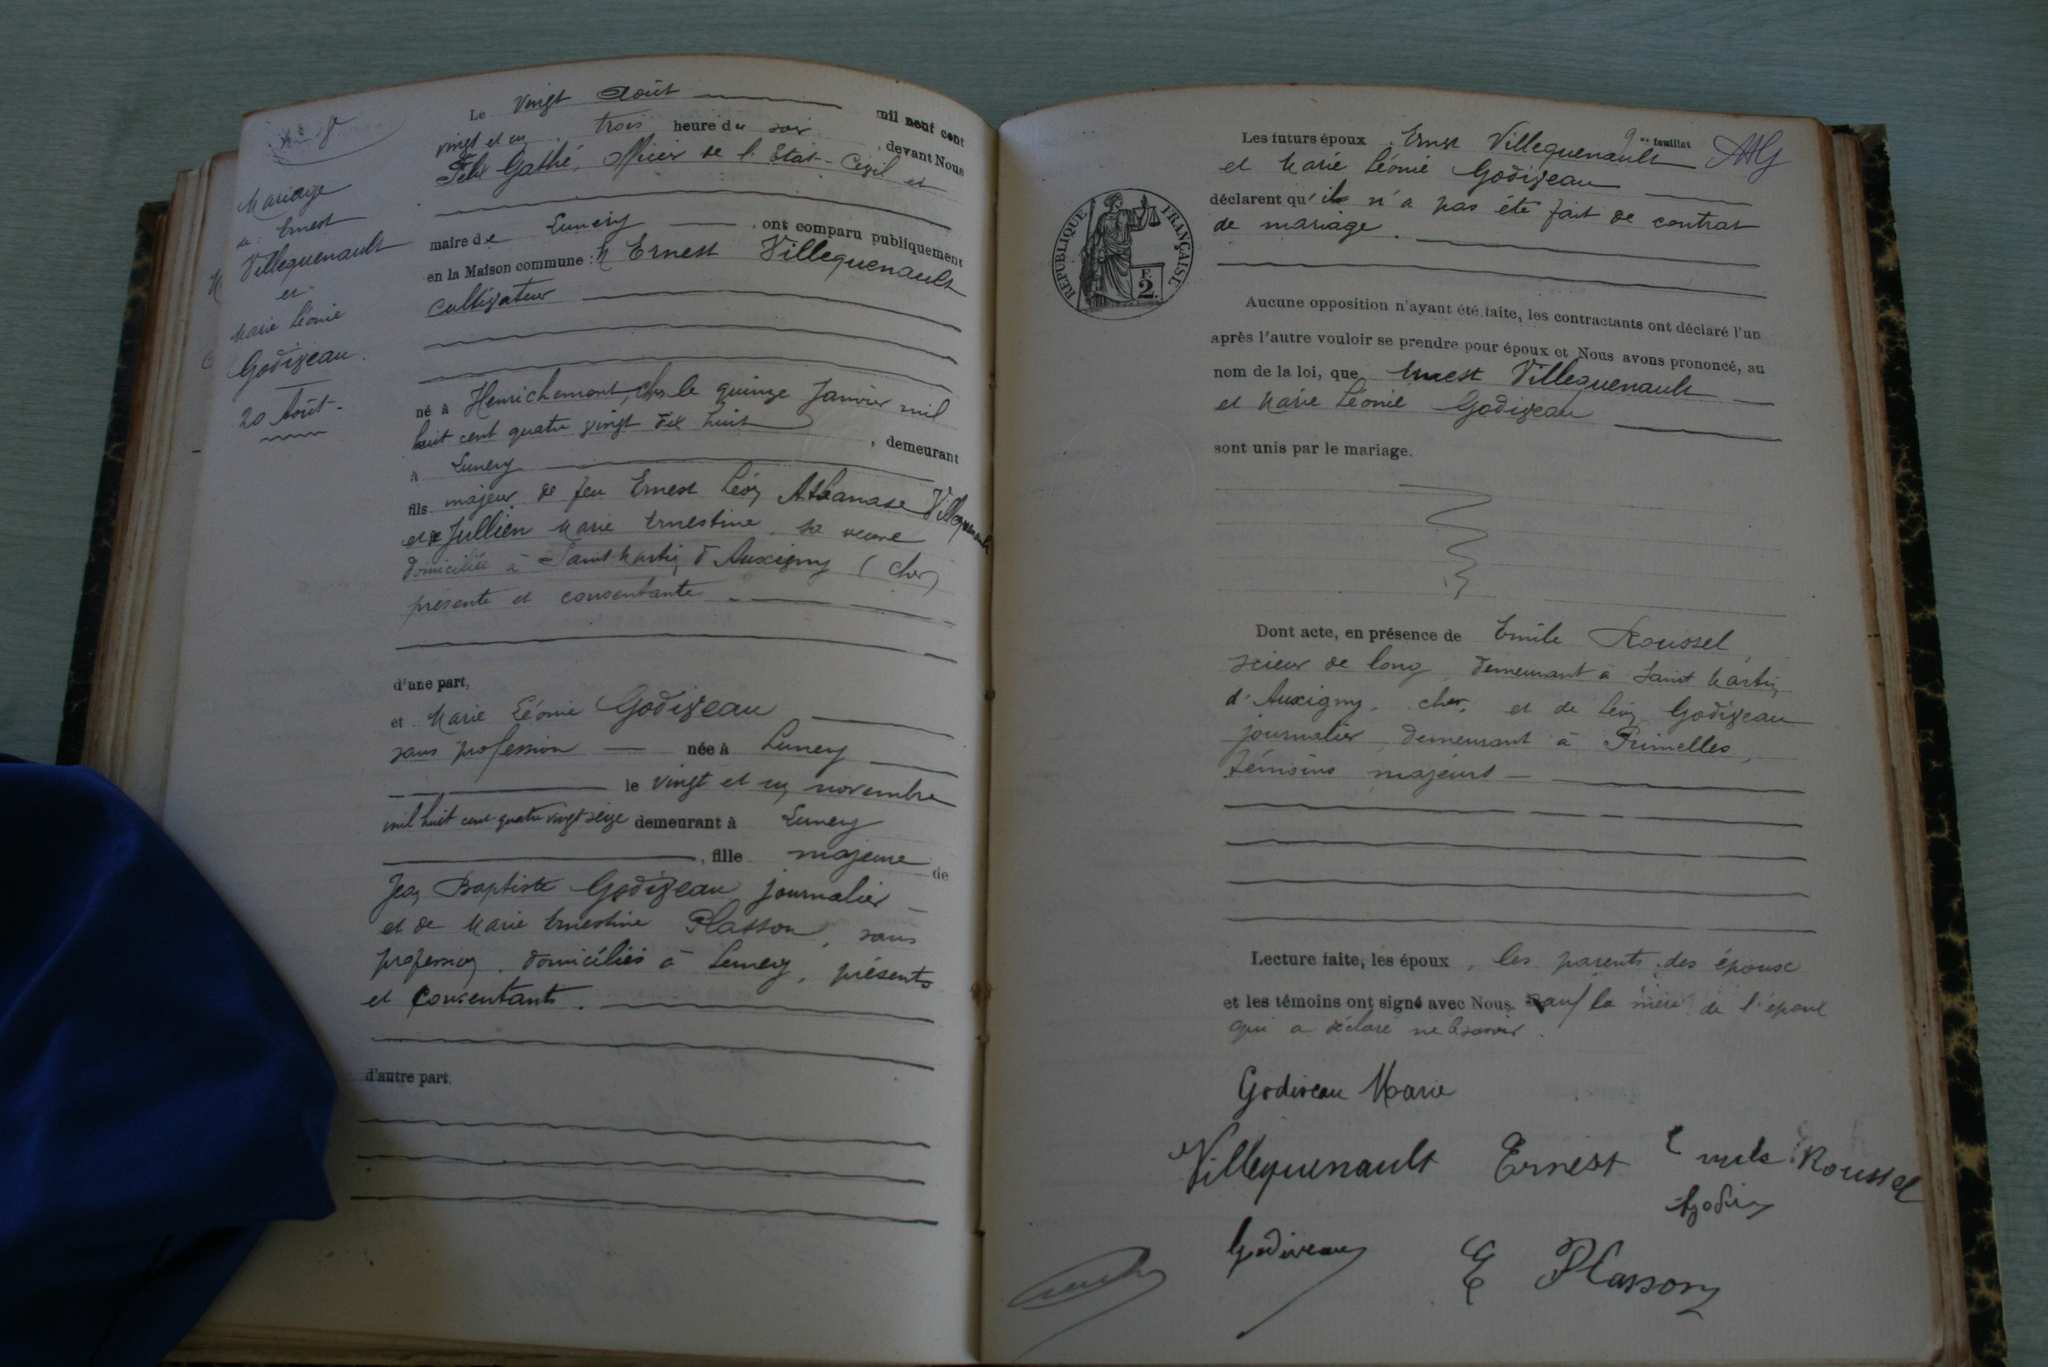 n° 8
Mariage
de Ernest
Villequenault
et
Marie Léonie
Godiveau.
20 Août.
Le vingt Août mil neuf cent
vingt et un trois heure du soir, devant Nous
Félix Gathé, officier de l'Etat-Civil et
maire de Lunery, ont comparu publiquement
en la Maison commune : M Ernest Villequenault
cultivateur
né à Henrichemont, Cher, le quinze Janvier mil
huit cent quatre vingt dix huit, demeurant
à Lunery
fils majeur de feu Ernest Léon Athanase Villequenault
et de Jullien Marie Ernestine, sa veuve
domiciliée à Saint Martin d'Auxigny (Cher)
présente et consentante
d'une part,
et Marie Léonie Godiveau
sans profession née à Lunery
le vingt et un novembre
mil huit cent quatre vingt seize demeurant à Lunery
, fille majeure de
Jean Baptiste Godiveau journalier
et de Marie Ernestine Plasson, sans
profession, domiciliés à Lunery, présents
et consentants.
d'autre part.
9me feuillet
Les futurs époux Ernest Villequenault
et Marie Léonie Godiveau
déclarent qu'il n'a pas été fait de contrat
de mariage.
RÉPUBLIQUE FRANÇAISE
F.
2.
Aucune opposition n'ayant été faite, les contractants ont déclaré l'un
après l'autre vouloir se prendre pour époux et Nous avons prononcé, au
nom de la loi, que Ernest Villequenault
et Marie Léonie Godiveau
sont unis par le mariage.
Dont acte, en présence de Emile Roussel,
scieur de long, demeurant à Saint Martin
d'Auxigny, Cher, et de Léon Godiveau
journalier, demeurant à Primelles,
témoins majeurs
Lecture faite, les époux, les parents des époux
et les témoins ont signé avec Nous sauf la mère de l'époux
qui a déclaré ne savoir.
Godiveau Marie
Villequenault Ernest Emile Roussel
Godiveau E Plasson